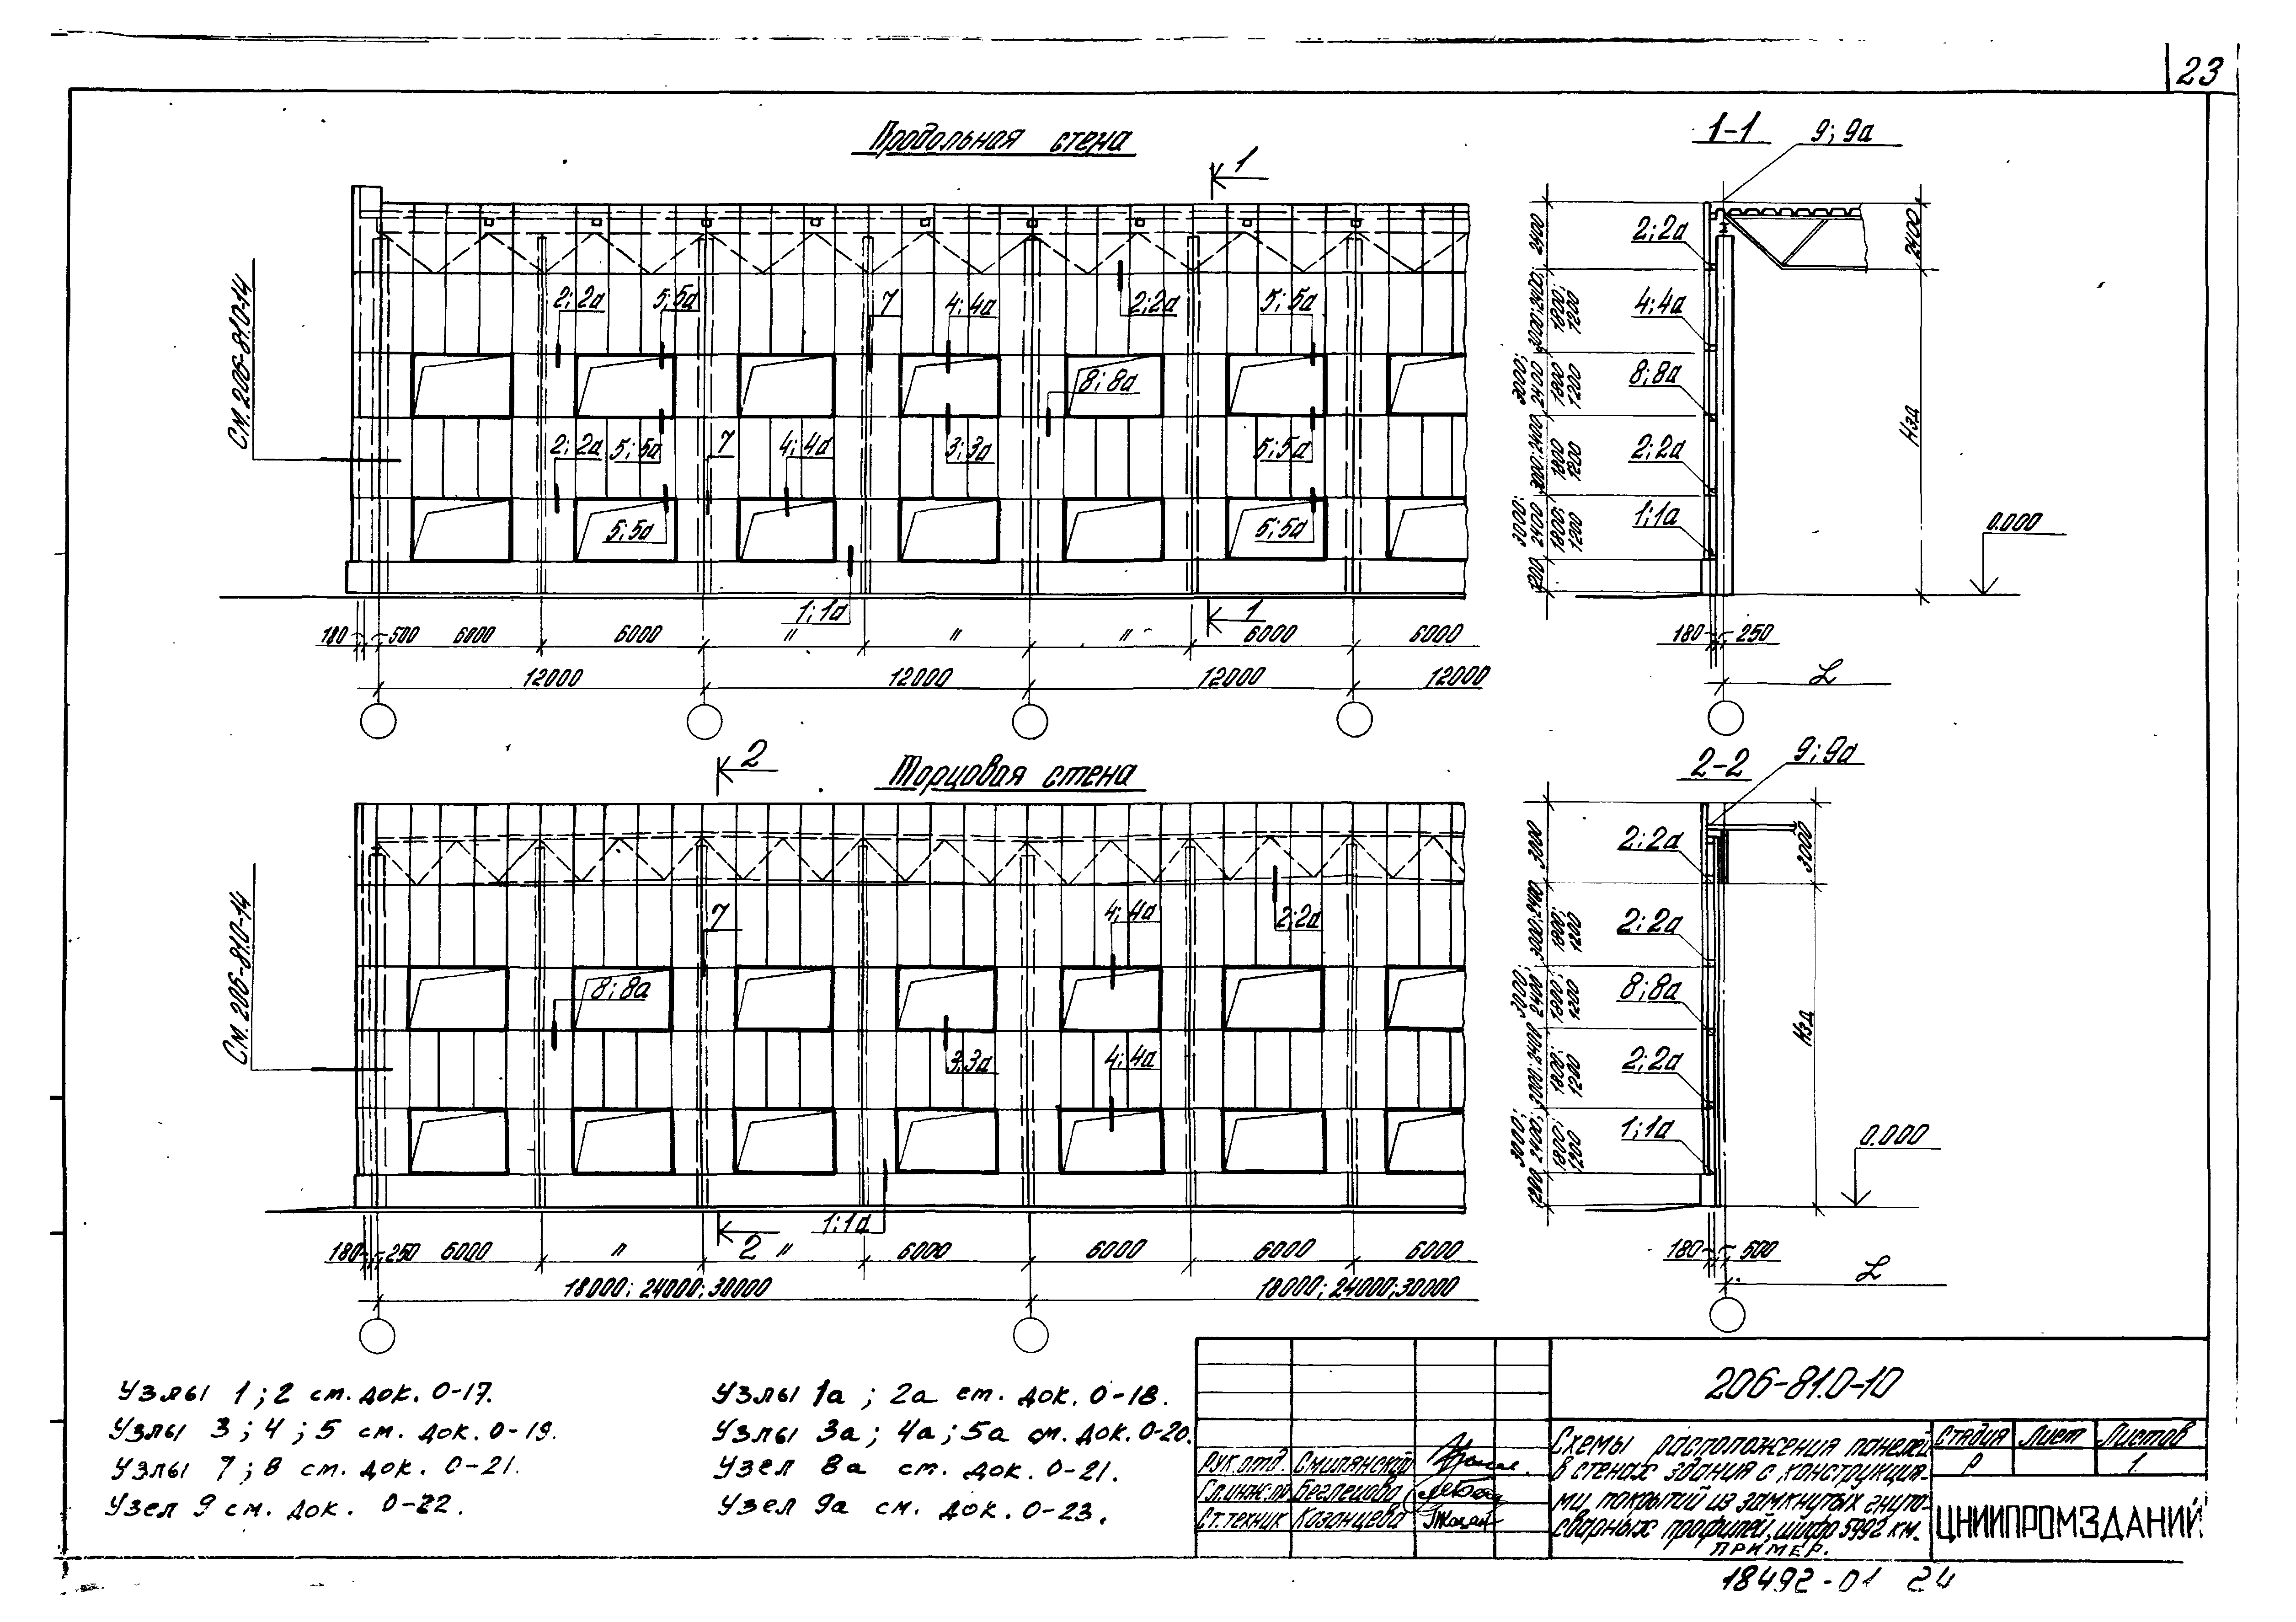 23
Продольная стена
1
1-1
9; 9а
См. 206-81.0-14
2; 2а
5; 5а
7
4; 4а
2; 2а
5; 5а
8; 8а
2; 2а
5; 5а
7
4; 4а
3; 3а
5; 5а
5; 5а
5; 5а
1; 1а
1
180
500
6000
6000
"
"
"
6000
6000
12000
12000
12000
12000
2400
3000; 2400;
1800;
1200
3000;
2400
1800
1200
3000; 2400
1800
1200
3000;
2400
1800;
1200
1200
2; 2а
4; 4а
8; 8а
2; 2а
1; 1а
2400
Нзд
0.000
180
250
L
2
Торцовая стена
2-2
9; 9а
См. 206-81.0-14
7
4; 4а
2; 2а
8; 8а
3; 3а
4; 4а
1; 1а
2
180
250
6000
"
"
6000
6000
6000
6000
18000; 24000; 30000
18000; 24000; 30000
3000
3000; 2400
1800;
1200
3000;
2400
1800;
1200
3000; 2400
1800;
1200
3000;
2400;
1800;
1200
1200
2; 2а
2; 2а
8; 8а
2; 2а
1; 1а
3000
Нзд
0.000
180
500
L
Узлы 1; 2 см. док. 0-17.
Узлы 3; 4; 5 см. док. 0-19.
Узлы 7; 8 см. док. 0-21.
Узел 9 см. док. 0-22.
Узлы 1а; 2а см. док. 0-18.
Узлы 3а; 4а; 5а см. док. 0-20.
Узел 8а см. док. 0-21.
Узел 9а см. док. 0-23.
206-81.0-10
Рук. отд. Смилянский
Гл. инж. пр. Беглецова
Ст. техник Казанцева
Схемы расположения панелей
в стенах здания с конструкция-
ми покрытий из замкнутых гнуто-
сварных профилей, шифр 5992 км.
Пример.
Стадия Лист Листов
Р 1
ЦНИИПРОМЗДАНИЙ
18492-01 24